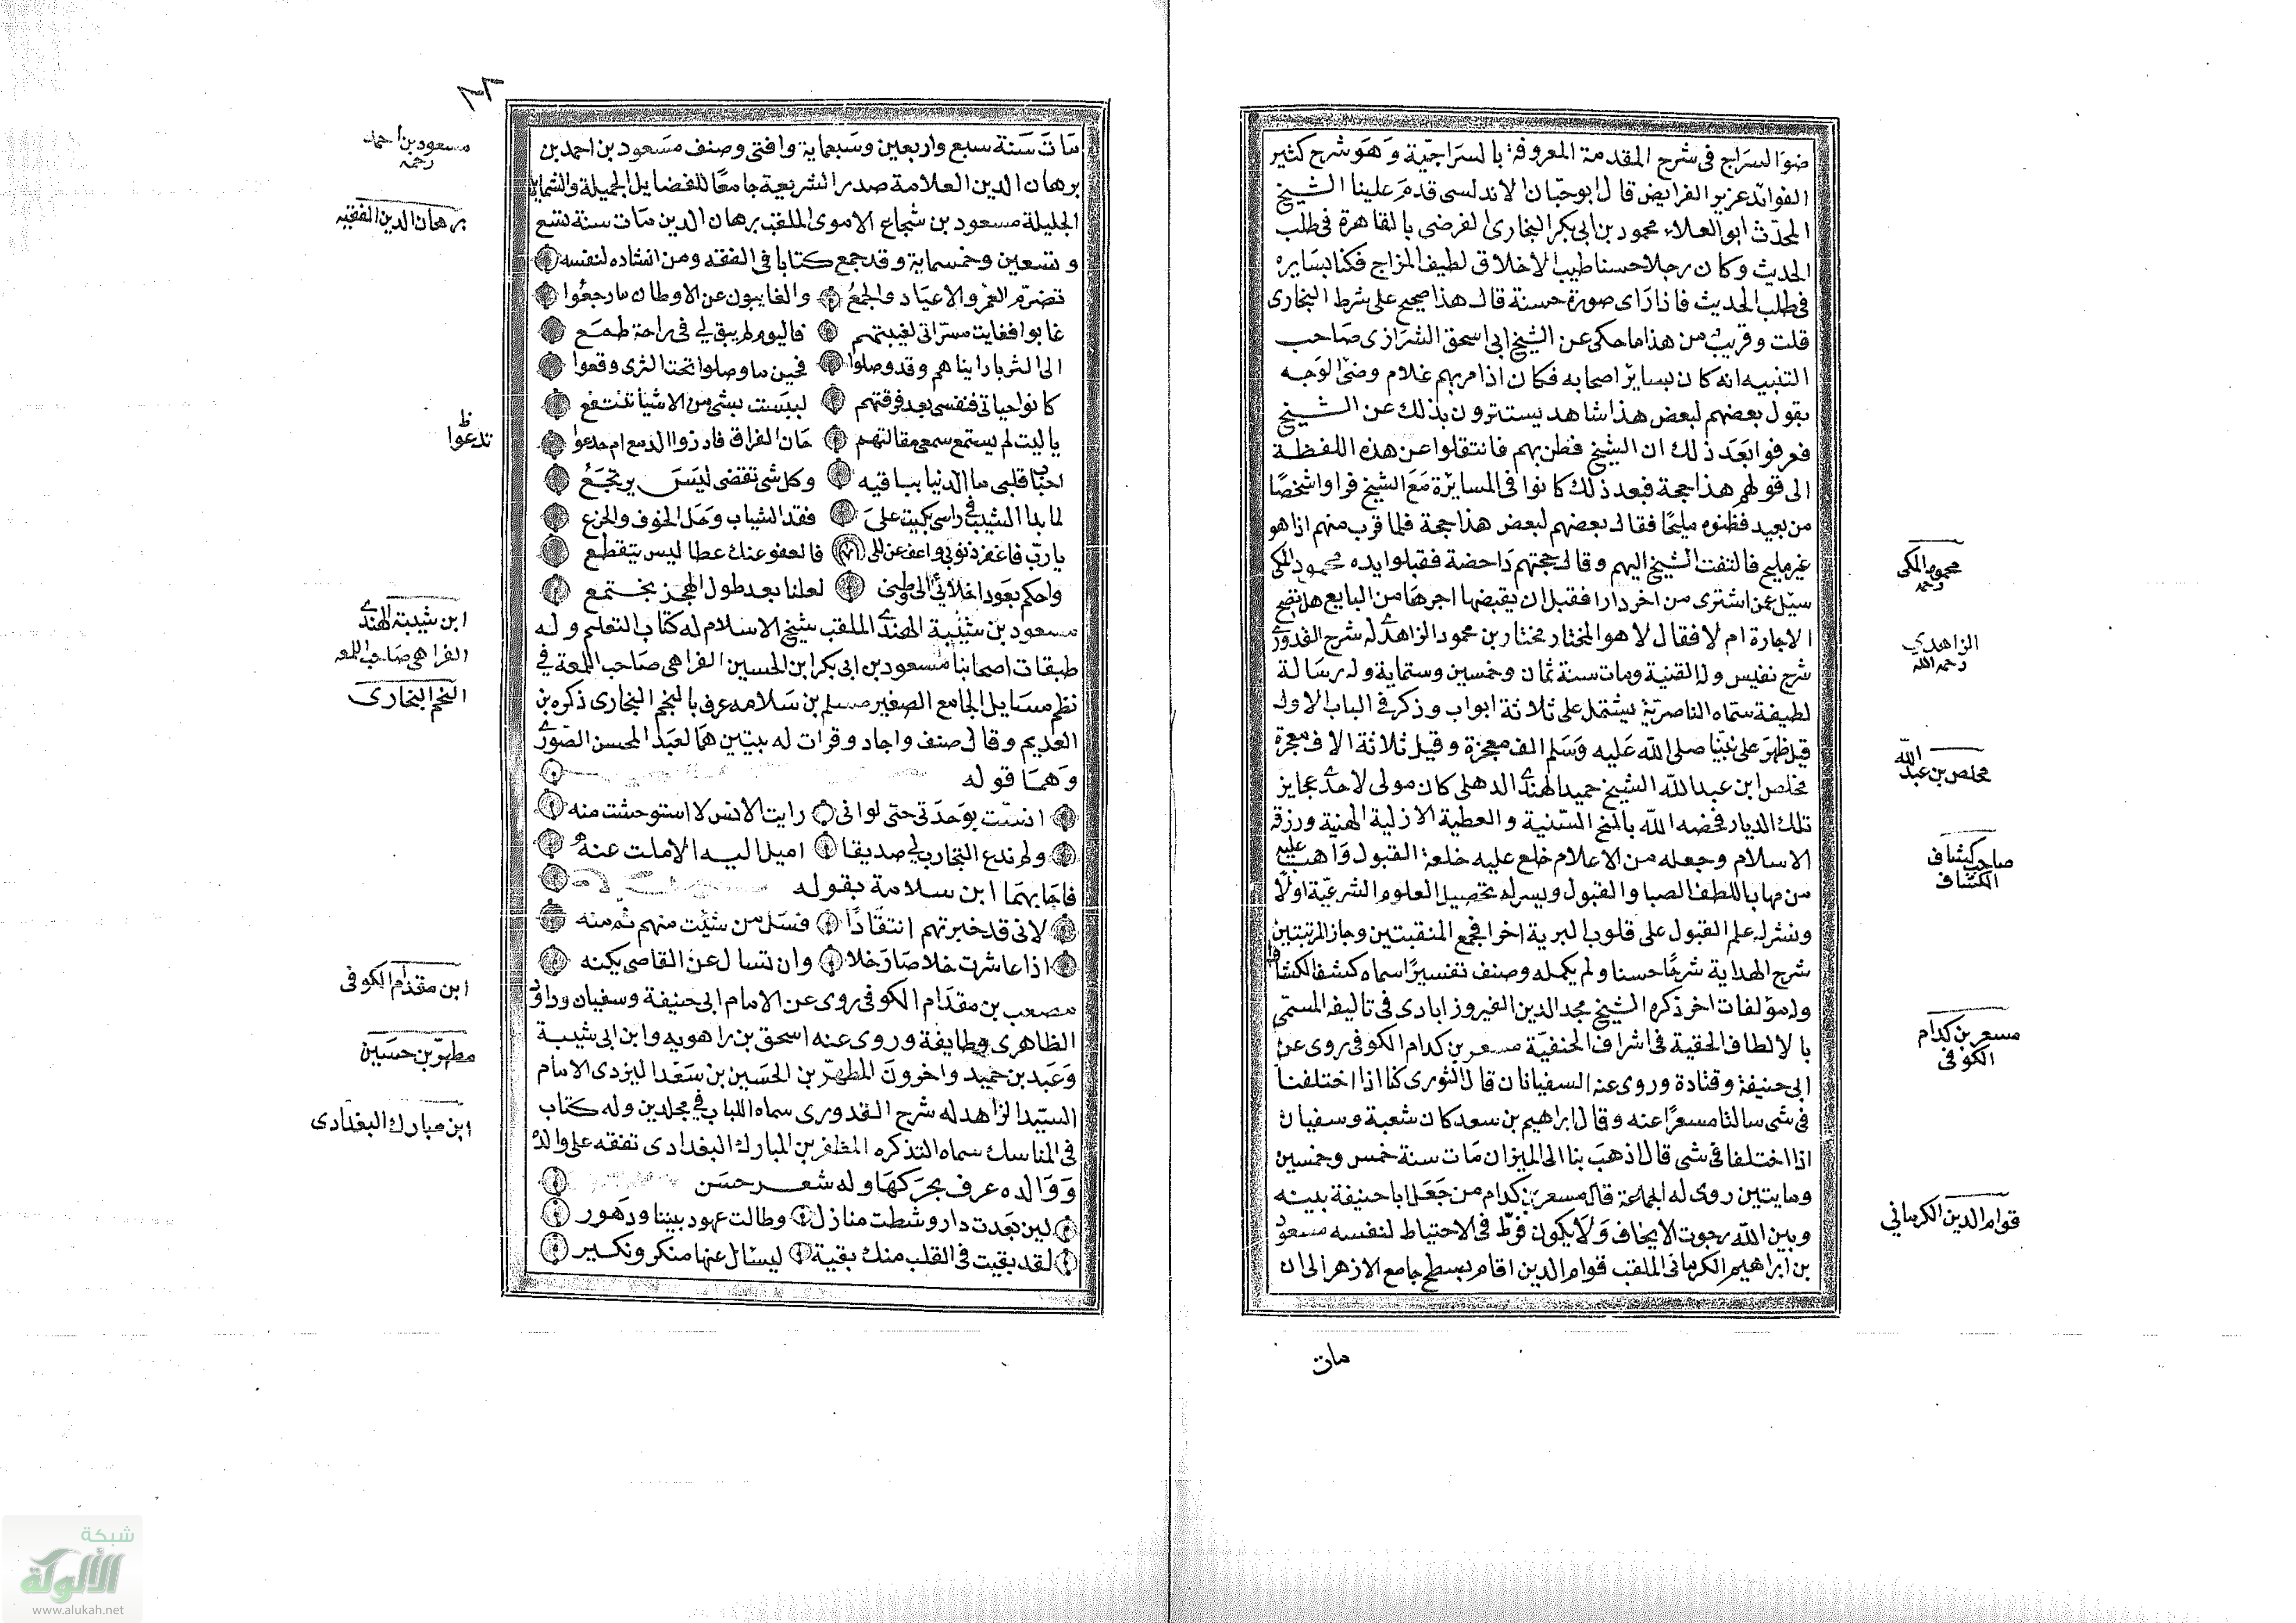 ضوا السراج فى شرح المقدمة المعروفة بالسراجية وهو شرح كثير
الفوائد عزيز الفرايض قال ابو حبان الاندلسى قدم علينا الشيخ
المحدث ابو العلاء محمود بن ابى بكر البخارى الفرضى بالقاهرة فى طلب
الحديث وكان رجلا حسنا طيب الاخلاق لطيف المزاج فكنا نسايره
فى طلب الحديث فاذا راى صورة حسنة قال هذا صحيح على شرط البخارى
قلت وقريب من هذا ما حكى عن الشيخ ابى اسحق الشرازى صاحب
التنبيه انه كان يساير اصحابه فكان اذا مر بهم غلام وضئ الوجه
يقول بعضهم لبعض هذا شاهد يستترون بذلك عن الشيخ
فعرفوا بعد ذلك ان الشيخ فطن بهم فانتقلوا عن هذه اللفظة
الى قولهم هذا حجة فبعد ذلك كانوا فى المسايرة مع الشيخ فراوا شخصا
من بعيد فظنوه مليحا فقال بعضهم لبعض هذا حجة فلما قرب منهم اذا هو
غير مليح فالتفت الشيخ اليهم وقال حجتهم داحضة فقبلوا يده محمود المكى
سئل عن اشترى من اخر دارا فقبل ان يقبضها اجرها من البايع هل تصح
الاجارة ام لا فقال لا هو المختار مختار بن محمود الزاهدى له شرح القدورى
شرح نفيس وله القنية ومات سنة ثمان وخمسين وستماية وله رسالة
لطيفة سماه الناصرية يشتمل على ثلاثة ابواب وذكر فى الباب الاول
قيل ظهر على نبينا صلى الله عليه وسلم الف معجزة وقيل ثلاثة الاف معجزة
مخلص ابن عبد الله الشيخ حميد الهندى الدهلى كان مولى لاحدى عجايز
تلك الديار فخصه الله بالمنح السنية والعطية الازلية الهنية ورزقه
الاسلام وجعله من الاعلام خلع عليه خلعة القبول واهب عليه
من مهاب اللطف الصبا والقبول ويسر له تحصيل العلوم الشرعية اولا
ونشر له علم القبول على قلوب البرية اخرا فجمع المنقبتين وحاز المرتبتين
شرح الهداية شرحا حسنا ولم يكمله وصنف تفسيرا سماه كشف الكشاف
وله مؤلفات اخر ذكره الشيخ مجد الدين الفيروزابادى فى تاليفه المسمى
بالالطاف الخفية فى اشراف الحنفية مسعر بن كدام الكوفى روى عن
ابى حنيفة وقتادة وروى عنه السفيانان قال الثورى كنا اذا اختلفنا
فى شى سالنا مسعرا عنه وقال ابراهيم بن سعد كان شعبة وسفيان
اذا اختلفا فى شى قال اذهب بنا الى الميزان مات سنة خمس وخمسين
ومايتين روى له الجماعة قال مسعر بن كدام من جعل ابا حنيفة بينه
وبين الله رجوت الا يخاف ولا يكون فرط فى الاحتياط لنفسه مسعود
بن ابراهيم الكرمانى الملقب قوام الدين اقام بسطح جامع الازهر الى ان
مات
محمود المكى
رحمه
الزاهدي
رحمه الله
مخلص بن عبد الله
صاحب كشاف
الكشاف
مسعر بن كدام
الكوفى
قوام الدين الكرمانى
مات سنة سبع واربعين وسبعماية وافتى وصنف مسعود بن احمد بن
برهان الدين العلامة صدر الشريعة جامعا للفضايل الجميلة والشمايل
الجليلة مسعود بن شجاع الاموى الملقب برهان الدين مات سنة تسع
وتسعين وخمسماية وقد جمع كتابا فى الفقه ومن انشاده لنفسه
تضرم العمر والاعياد والجمع والغايبون عن الاوطان ما رجعوا
غابوا فغابت مسراتى لغيبتهم فاليوم لم يبق لي فى راحة طمع
الى الثريا راينا هم وقد وصلوا فحين ما وصلوا تحت الثرى وقعوا
كانوا حياتى فنفسى بعد فرقتهم ليست بشى من الاشيا تنتفع
يا ليت لم يستمع سمعى مقالتهم حان الفراق فاذروا الدمع ام
احباب قلبى ما الدنيا بباقيه وكل شى تقضى ليس يرتجع
لما بدا الشيب فى راسى بكيت على فقد الشباب وحل الخوف والجزع
يا رب فاغفر ذنوبى واعف عن زللى فالعفو عنك عطا ليس ينقطع
واحكم بعود اخلائى الى وطنى لعلنا بعد طول الهجر نجتمع
مسعود بن شيبة الهندى الملقب شيخ الاسلام له كتاب التعليم وله
طبقات اصحابنا مسعود بن ابى بكر ابن الحسين الفراهى صاحب اللمعة فى
نظم مسايل الجامع الصغير مسلم بن سلامه عرف بالنجم البخارى ذكره بن
العديم وقال صنف واجاد وقرات له بيتين هما لعبد المحسن الصورى
وهما قوله
انست بوحدتى حتى لوانى رايت الانس لاستوحشت منه
ولم تدع التجارب لى صديقا اميل اليه الا ملت عنه
فاجابهما ابن سلامة بقوله
لانى قد خبرتهم انتقادا فسل من شئت منهم ثم منه
اذا عاشرت خلا صار خلا وان تسال عن القاصى يكنه
مصعب بن مقدام الكوفى روى عن الامام ابى حنيفة وسفيان وداود
الظاهرى وطايفة وروى عنه اسحق بن راهويه وابن ابى شيبة
وعبد بن حميد واخرون المطهر بن الحسين بن سعد اليزدى الامام
السيد الزاهد له شرح القدورى سماه اللباب فى مجلدين وله كتاب
فى المناسك سماه التذكره المظفر بن المبارك البغدادى تفقه على والده
ووالده عرف بحركها وله شعر حسن
لين بعدت دار وشطت منازل وطالت عهود بيننا ودهور
لقد بقيت فى القلب منك بقية ليسال عنها منكر ونكير
مسعود بن احمد
رحمه
برهان الدين الفقيه
ظ
تدعوا
ابن شيبة الهندى
الفراهى صاحب اللمعه
النجم البخارى
ابن مقدام الكوفى
مطهر بن حسين
ابن مبارك البغدادى
شبكة
الألوكة
www.alukah.net